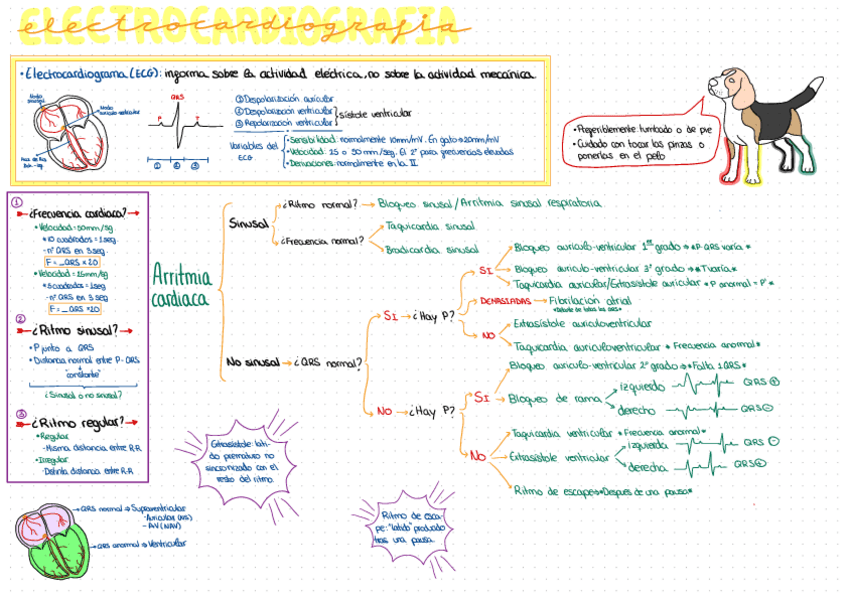 ELECTROCARDIOGRAFIA
electrocardiografia
• Electrocardiograma (ECG): informa sobre la actividad eléctrica, no sobre la actividad mecánica.
Nodo
auriculo ventricular
QRS
P
T
① ② ③
① Despolarización auricular
② Despolarización ventricular
③ Repolarización ventricular
sístole ventricular
Variables del
ECG
• Sensibilidad: normalmente 10mm/mV. En gato → 20mm/mV
• Velocidad: 25 o 50 mm/seg. El 2º para frecuencias elevadas
• Derivaciones: normalmente en la II.
• Preferiblemente tumbado o de pie
• Cuidado con tocar las pinzas o
ponerlas en el pelo
①
¿Frecuencia cardiaca?
• Velocidad = 50mm/sg
* 10 cuadrados = 1 seg
- nº QRS en 3 seg.
F = _QRS × 20
• Velocidad = 25mm/sg
* 5 cuadrados = 1 seg
- nº QRS en 3 seg
F = _QRS × 20
②
¿Ritmo sinusal?
• P junto a QRS
• Distancia normal entre P-QRS
"constante"
¿Sinusal o no sinusal?
③
¿Ritmo regular?
• Regular
- Misma distancia entre R-R
• Irregular
- Distinta distancia entre R-R
Arritmia
cardiaca
Sinusal
¿Ritmo normal? → Bloqueo sinusal/Arritmia sinusal respiratoria
¿Frecuencia normal?
Taquicardia sinusal
Bradicardia sinusal
No sinusal → ¿QRS normal?
SI → ¿Hay P?
SI
Bloqueo auriculo-ventricular 1er grado → *P-QRS varía*
Bloqueo auriculo-ventricular 3º grado → *T varía*
Taquicardia auricular/Extrasístole auricular * P anormal = P' *
DEMASIADAS → Fibrilación atrial
NO
Extrasístole auriculoventricular
Taquicardia auriculoventricular * Frecuencia anormal *
NO → ¿Hay P?
SI
Bloqueo auriculo-ventricular 2º grado → * Falta 1 QRS *
Bloqueo de rama
izquierdo QRS ⊕
derecho QRS ⊖
NO
Taquicardia ventricular * Frecuencia anormal *
Extrasístole ventricular
izquierda QRS ⊖
derecha QRS ⊕
Ritmo de escape → * Despues de una pausa *
Extrasístole: lati-
do prematuro no
sincronizado con el
resto del ritmo.
Ritmo de esca-
pe: "latido" producido
tras una pausa.
QRS normal → Supraventricular
- Auricular (NS)
- AV (NAV)
QRS anormal → Ventricular